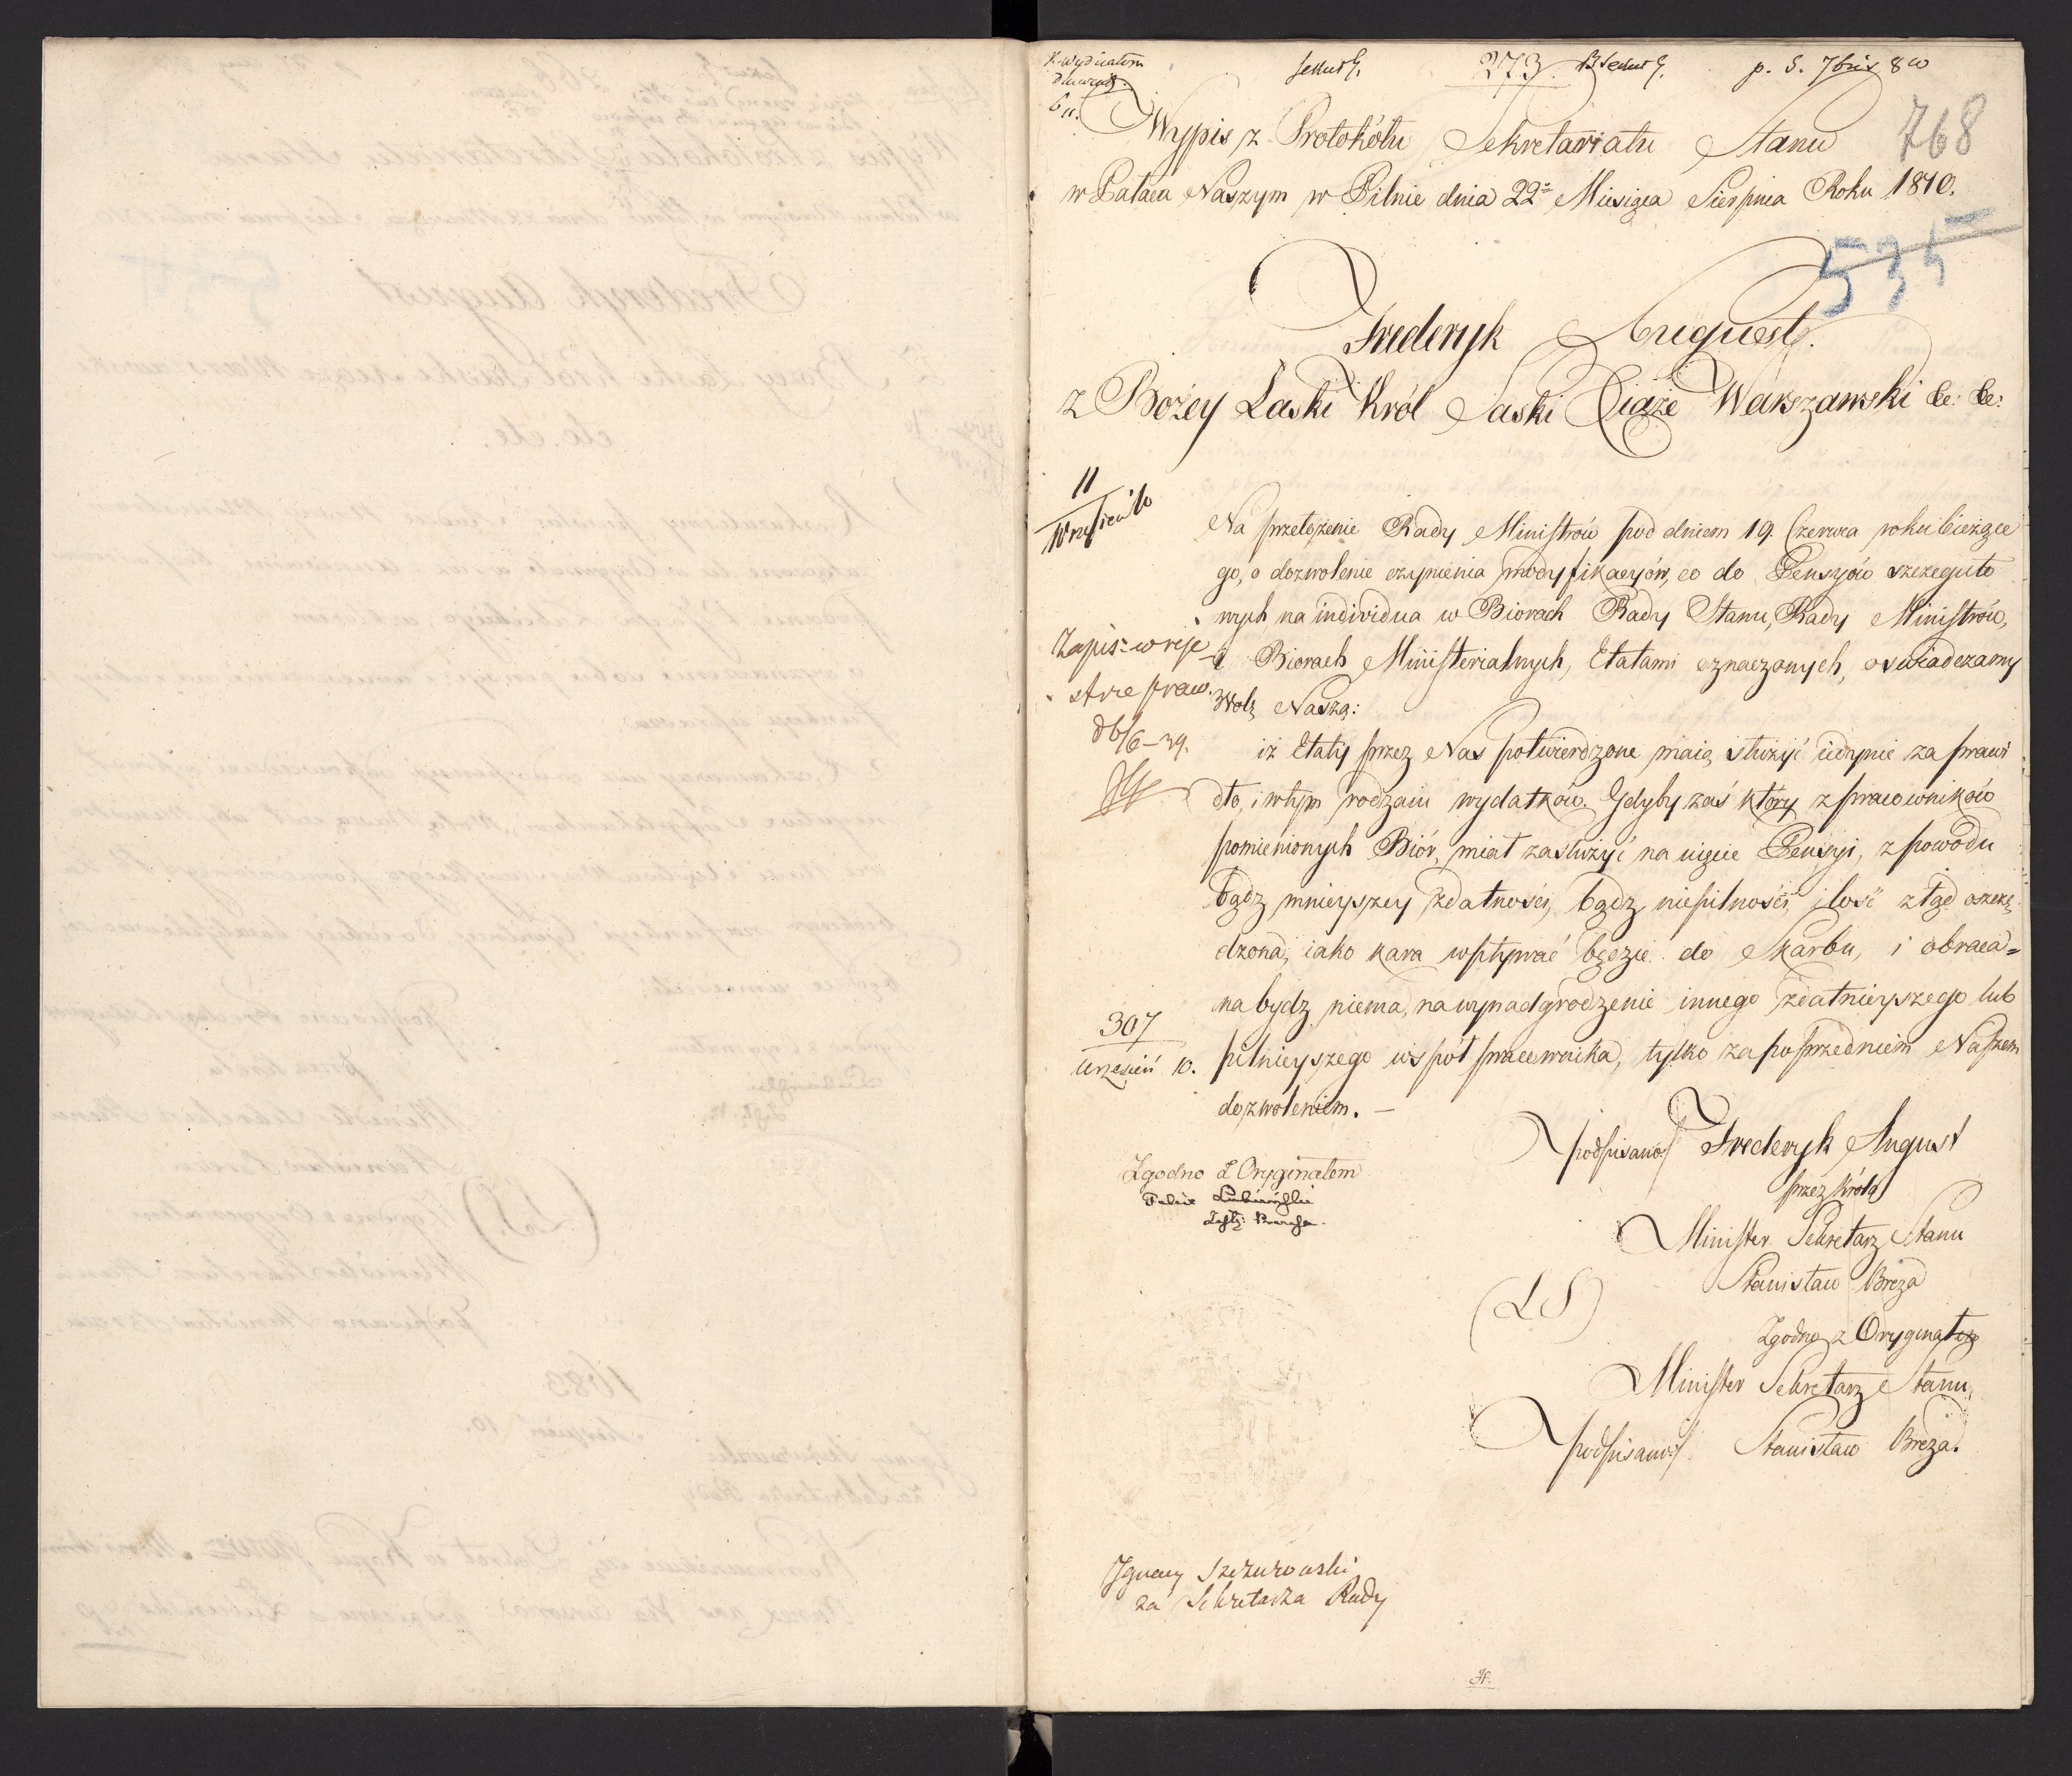 273.
768
Wypis z Protokółu Sekretariatu Stanu
w Pałacu Naszym w Pilnie dnia 22º Miesiąca Sierpnia Roku 1810.
535
Frederyk August.
z Bożey Łaski Król Saski Xiąże Warszawski &c: &c:
11
Wrześień 10
Na przełożenie Rady Ministrów pod dniem 19. Czerwca roku bieżące
go, o dozwolenie czynienia modyfikacyów, co do Pensyów szczeguło
wych na individua w Biorach Rady Stanu, Rady Ministrów,
i Biorach Ministerialnych, Etatami oznaczonych, oświadczamy
Wolę Naszą:
Zapis: w reje
strze praw.
iż Etaty przez Nas potwierdzone maią służyć iedynie za prawi
dło, i w tym rodzaiu wydatków. Gdyby zaś który z pracowników
pomienionych Biór, miał zasłużyć na uięcie Pensyi, z powodu
bądz mnieyszey zdatności, bądz niepilności, ilość ztąd oszczę
dzona, iako kara wpływać będzie do Skarbu, i obraca=
na bydz niema, na wynadgrodzenie innego zdatnieyszego lub
pilnieyszego wspólpracownika, tylko za poprzedniem Naszem
dozwoleniem. —
307
Wrzesień 10.
podpisano/ Frederyk August
przez Króla
Minister Sekretarz Stanu
Stanisław Breza
(LS)
Zgodno z Oryginałem
Minister Sekretarz Stanu,
podpisano/ Stanisław Breza.
Zgodno z Oryginałem
Felix Lubieński
Ignacy Szczurowski
za Sekretarza Rady